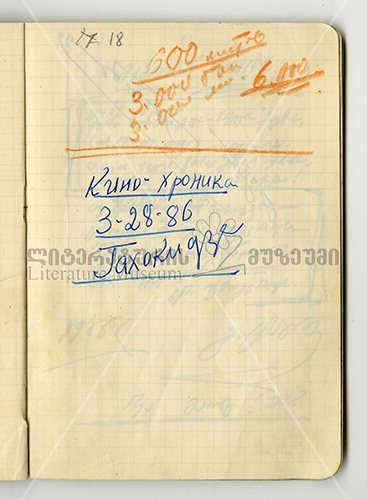 17 18
600 листов
3.000
3.000
6.000
Кино-хроника
3-28-86
Гахокидзе
ლიტერატურის მუზეუმი
Literature Museum